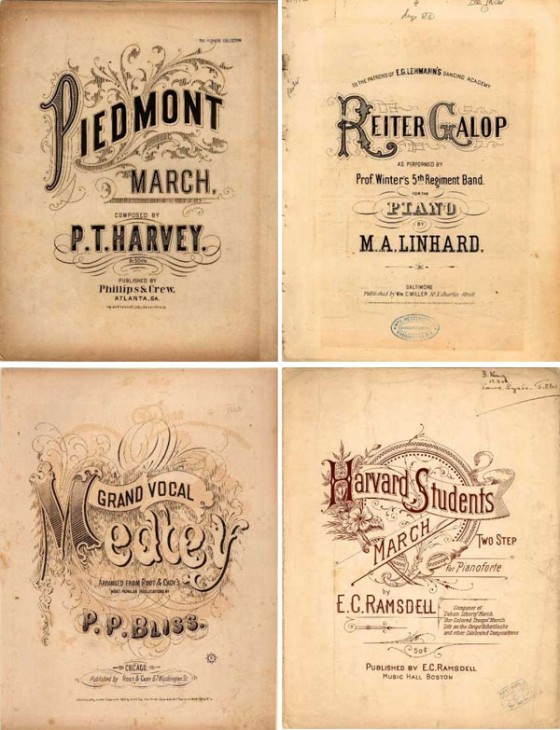 PIEDMONT
MARCH,
COMPOSED BY
P.T. HARVEY.
PUBLISHED BY
Phillips & Crew,
ATLANTA, GA.
TO THE PATRONS OF E.G. LEHMANN'S DANCING ACADEMY
REITER GALOP
AS PERFORMED BY
Prof. Winter's 5th Regiment Band.
FOR THE
PIANO
BY
M.A. LINHARD.
BALTIMORE
Published by Wm. C. MILLER
GRAND VOCAL
Medley
ARRANGED FROM ROOT & CADY'S
MOST POPULAR PUBLICATIONS BY
P.P. BLISS.
CHICAGO
Published by ROOT & CADY 67 Washington St.
Harvard Students
MARCH
TWO STEP
for Pianoforte
by
E.C. RAMSDELL
Composer of
and other Celebrated Compositions
50¢
PUBLISHED BY E.C. RAMSDELL
MUSIC HALL BOSTON